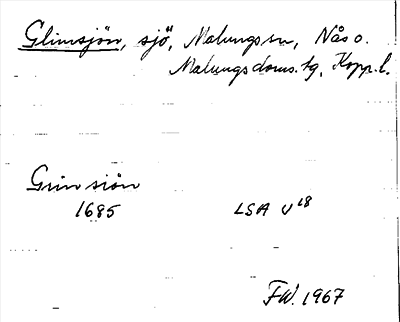 Glimsjön, sjö, Malungs sn, Nås o.
Malungs doms. tg, Kopp. l.
Grin siön
1685 LSA U 18
FW. 1967